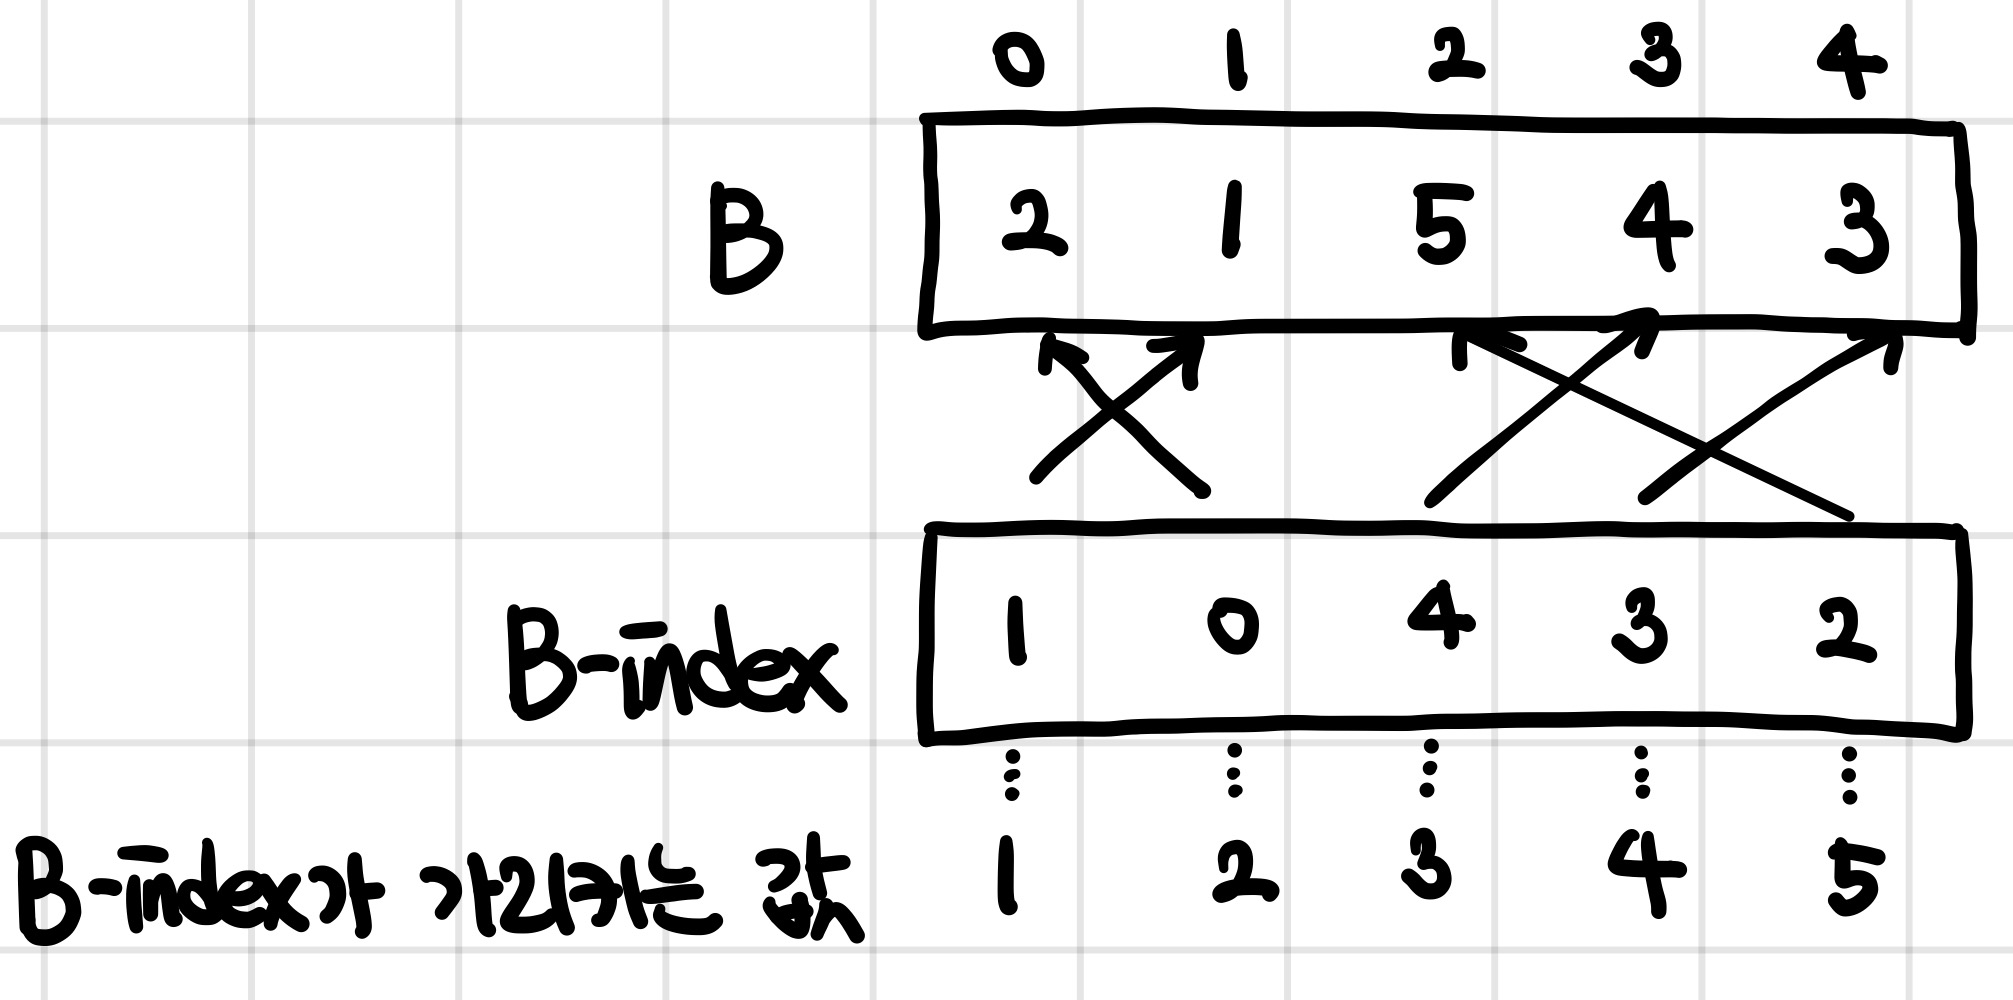 0 1 2 3 4
B 2 1 5 4 3
B-index 1 0 4 3 2
B-index가 가리키는 값 1 2 3 4 5